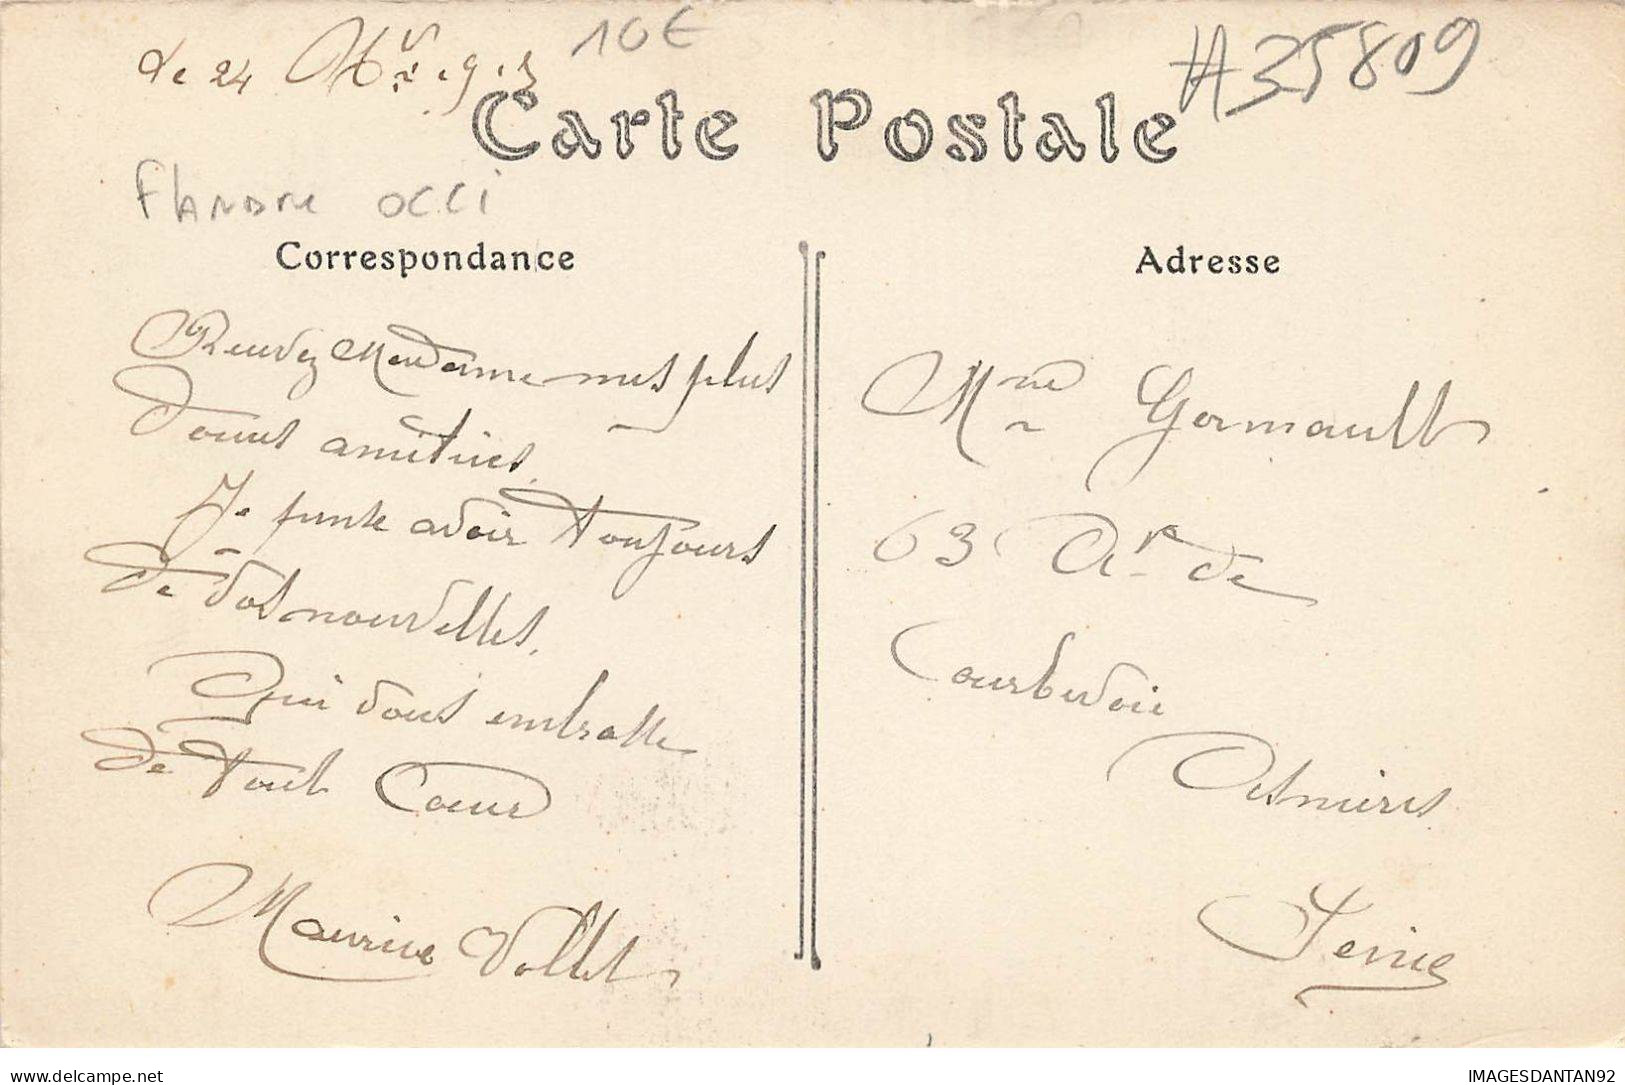 Le 24 9bre 1913
10€
#35809
Carte Postale
FLANDRE OCCI
Correspondance
Recevez Madame mes plus
douces amitiés.
Je pense avoir toujours
de vos nouvelles.
Qui vous embrasse
de tout Coeur
Maurice Vollet
Adresse
Mme Gormault
63 Av. de
Courbevoie
Asnières
Seine
delcampe.net
IMAGESDANTAN92